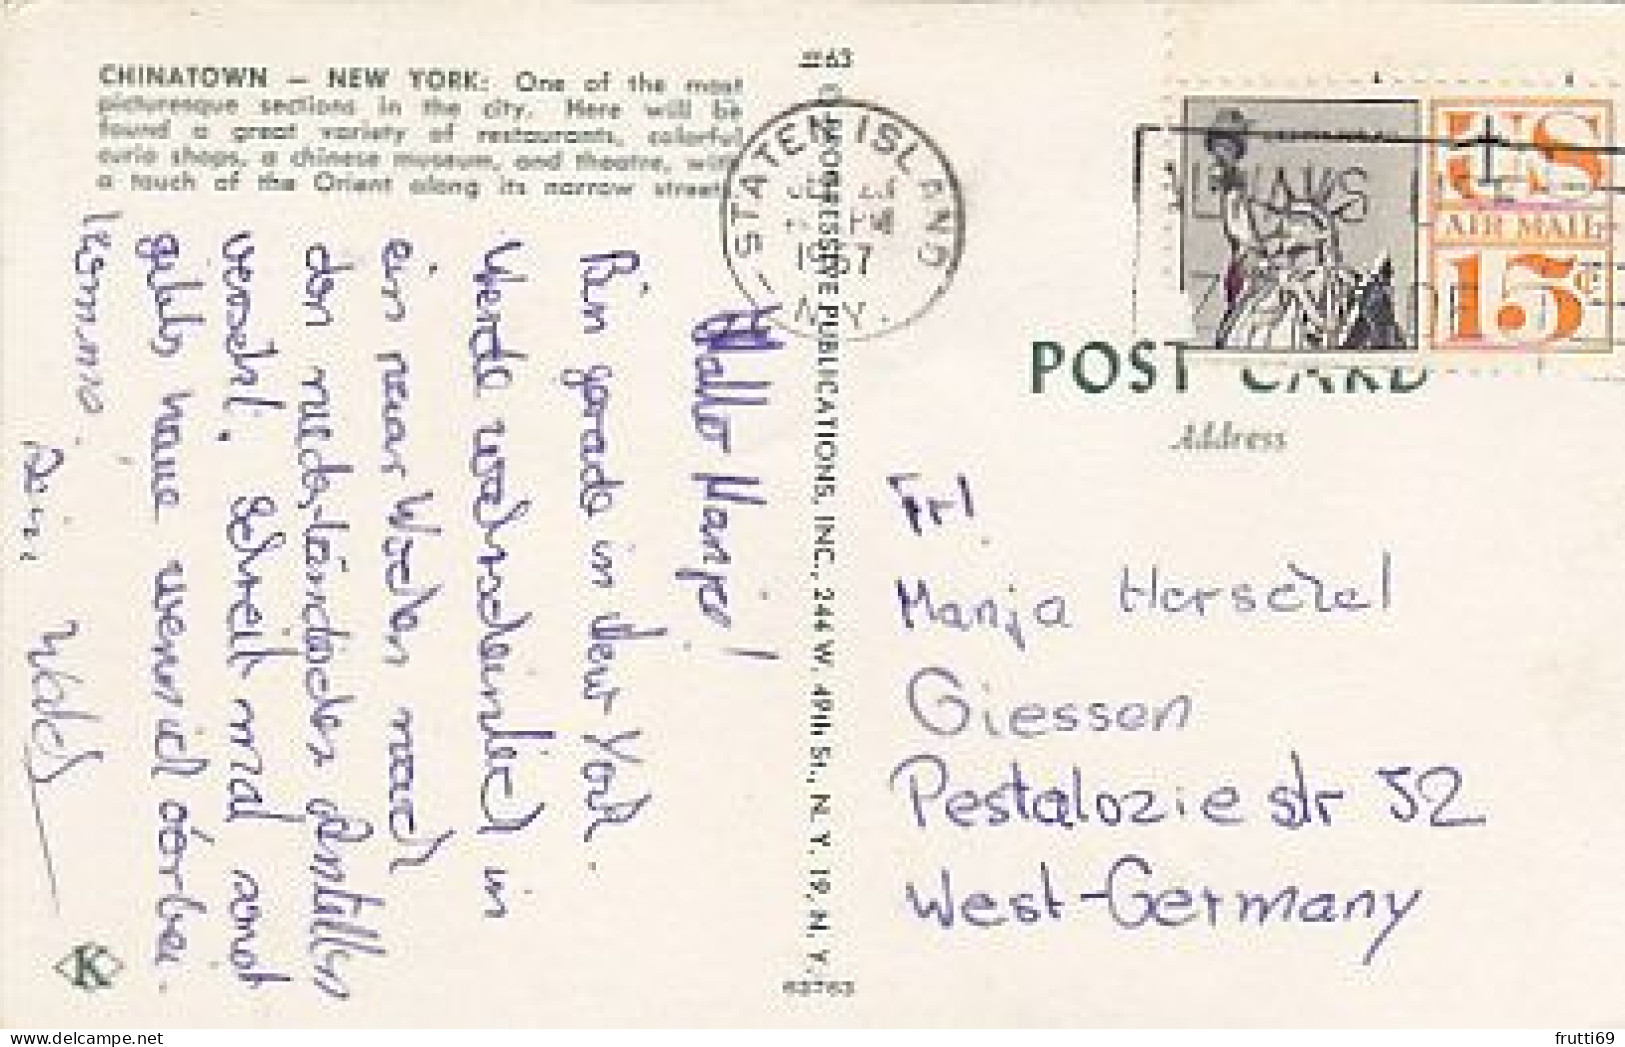 CHINATOWN — NEW YORK: One of the most
picturesque sections in the city. Here will be
found a great variety of restaurants, colorful
curio shops, a chinese museum, and theatre, with
a touch of the Orient along its narrow street
Hallo Manja!
Bin gerade in New York.
Werde wahrscheinlich in
ein paar Wochen nach
den niederländischen Antillen
Schreib mal
gibts keine
K
#63
PROGRESSIVE PUBLICATIONS, INC., 244 W. 49th St., N. Y. 19, N. Y.
63763
STATEN ISLAND
PM
1967
N.Y.
US
AIR MAIL
15¢
POST CARD
Address
Frl.
Manja Herschel
Giessen
Pestalozie str 52
West-Germany
frutti69